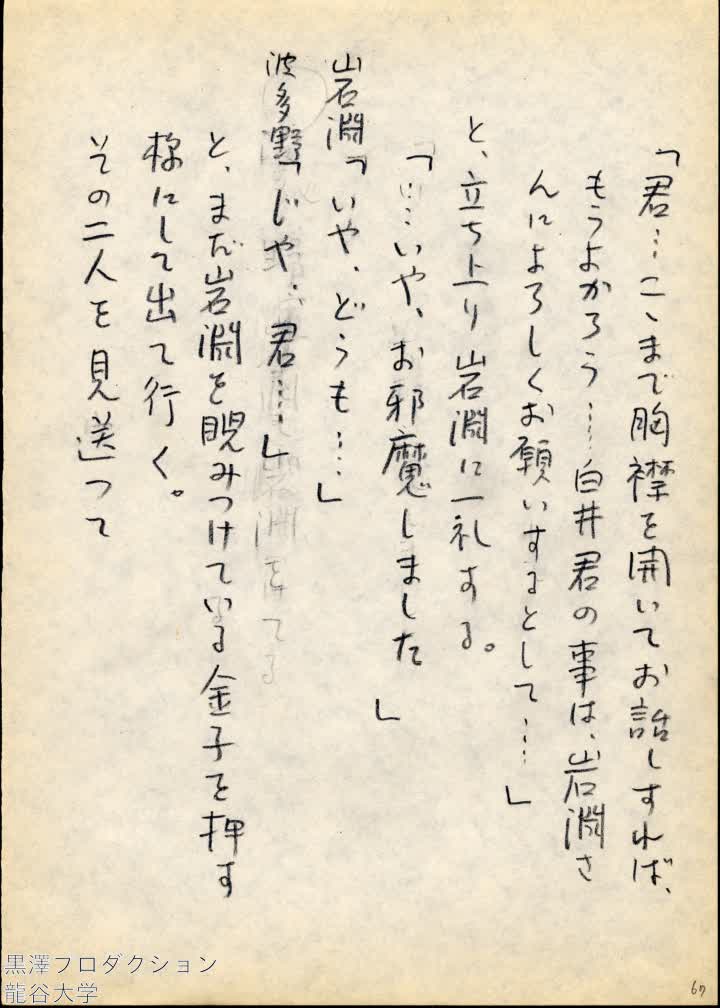 「君…こゝまで胸襟を開いてお話しすれば、
もうよかろう……白井君の事は、岩淵さ
んによろしくお願いするとして……」
と、立ち上り岩淵に一礼する。
「……いや、お邪魔しました」
岩淵「いや、どうも……」
波多野「じや、君……」
と、まだ岩淵を睨みつけている金子を押す
様にして出て行く。
その二人を見送つて
67
黒澤プロダクション
龍谷大学